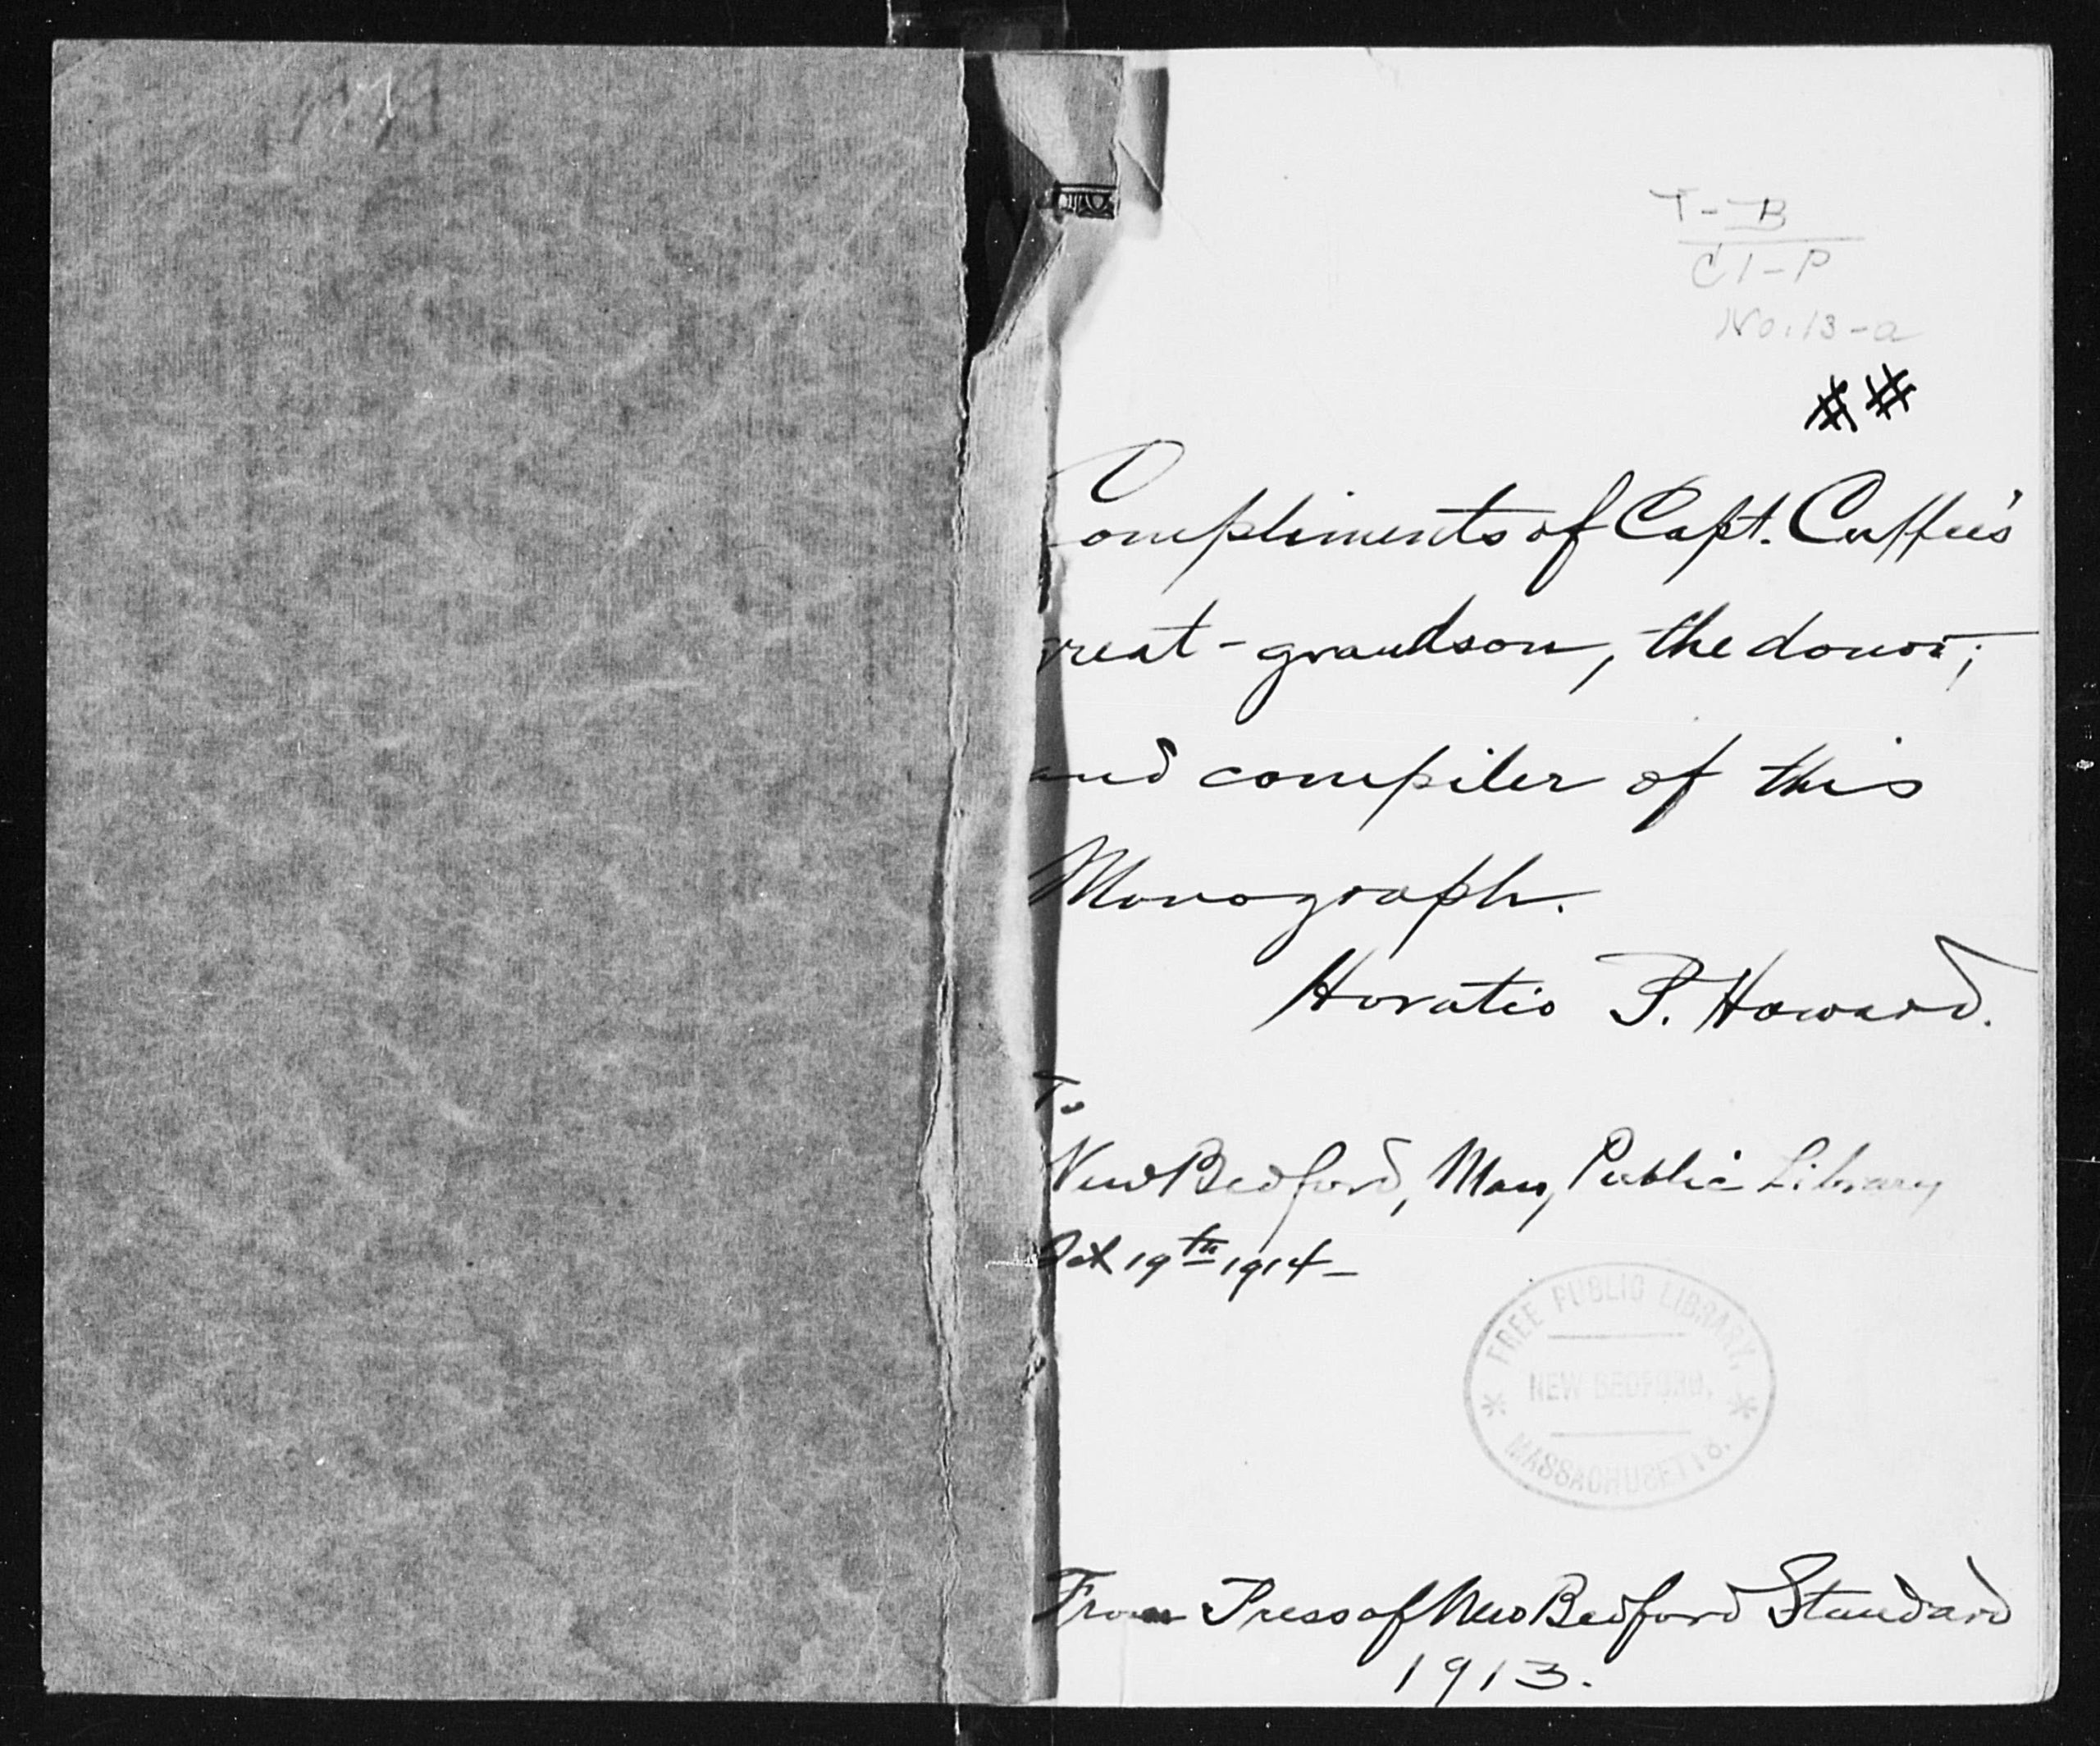 T-B
C1-P
No.13-a
##
Compliments of Capt. Cuffee's
great-grandson, the donor;
and compiler of this
Monograph.
Horatio P. Howard.
To
New Bedford, Mass, Public Library
Oct 19th 1914-
FREE PUBLIC LIBRARY,
NEW BEDFORD,
MASSACHUSETTS.
From Press of New Bedford Standard
1913.